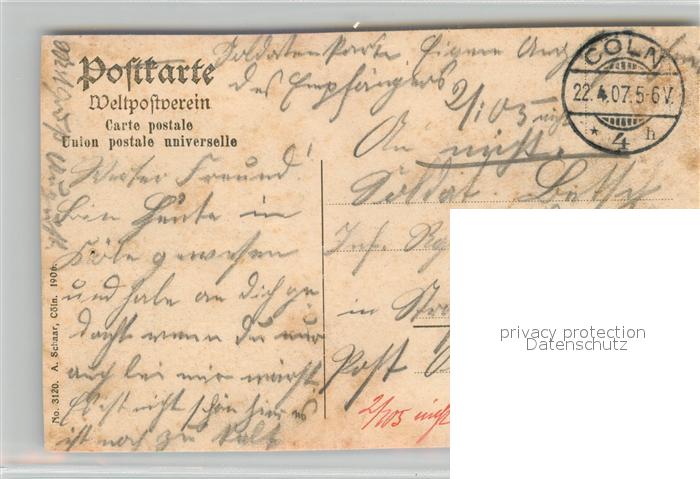 Postkarte
Weltpostverein
Carte postale
Union postale universelle
Soldatenkarte Eigene Ang
des Empfängers
CÖLN
22.4.07.5-6V.
* 4 h
2/105 nicht
An
Werter Freund!
Bin Heute in
Köln gewesen
und habe an dich ge
dacht wenn du nur
auch bei mir wärst
Es ist nicht schön hier es
ist noch zu kalt
Soldat
Inf. Reg
in Str
Post
2/105 nicht
No. 3120. A. Schaar, Cöln. 1906.
privacy protection
Datenschutz